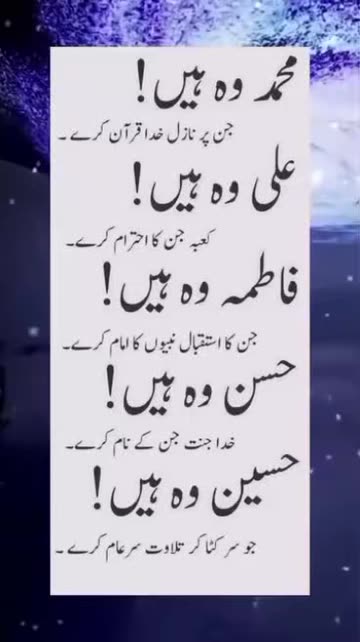 محمد وہ ہیں!
جن پر نازل خدا قرآن کرے۔
علی وہ ہیں!
کعبہ جن کا احترام کرے۔
فاطمہ وہ ہیں!
جن کا استقبال نبیوں کا امام کرے۔
حسن وہ ہیں!
خدا جنت جن کے نام کرے۔
حسین وہ ہیں!
جو سر کٹا کر تلاوت سرعام کرے۔